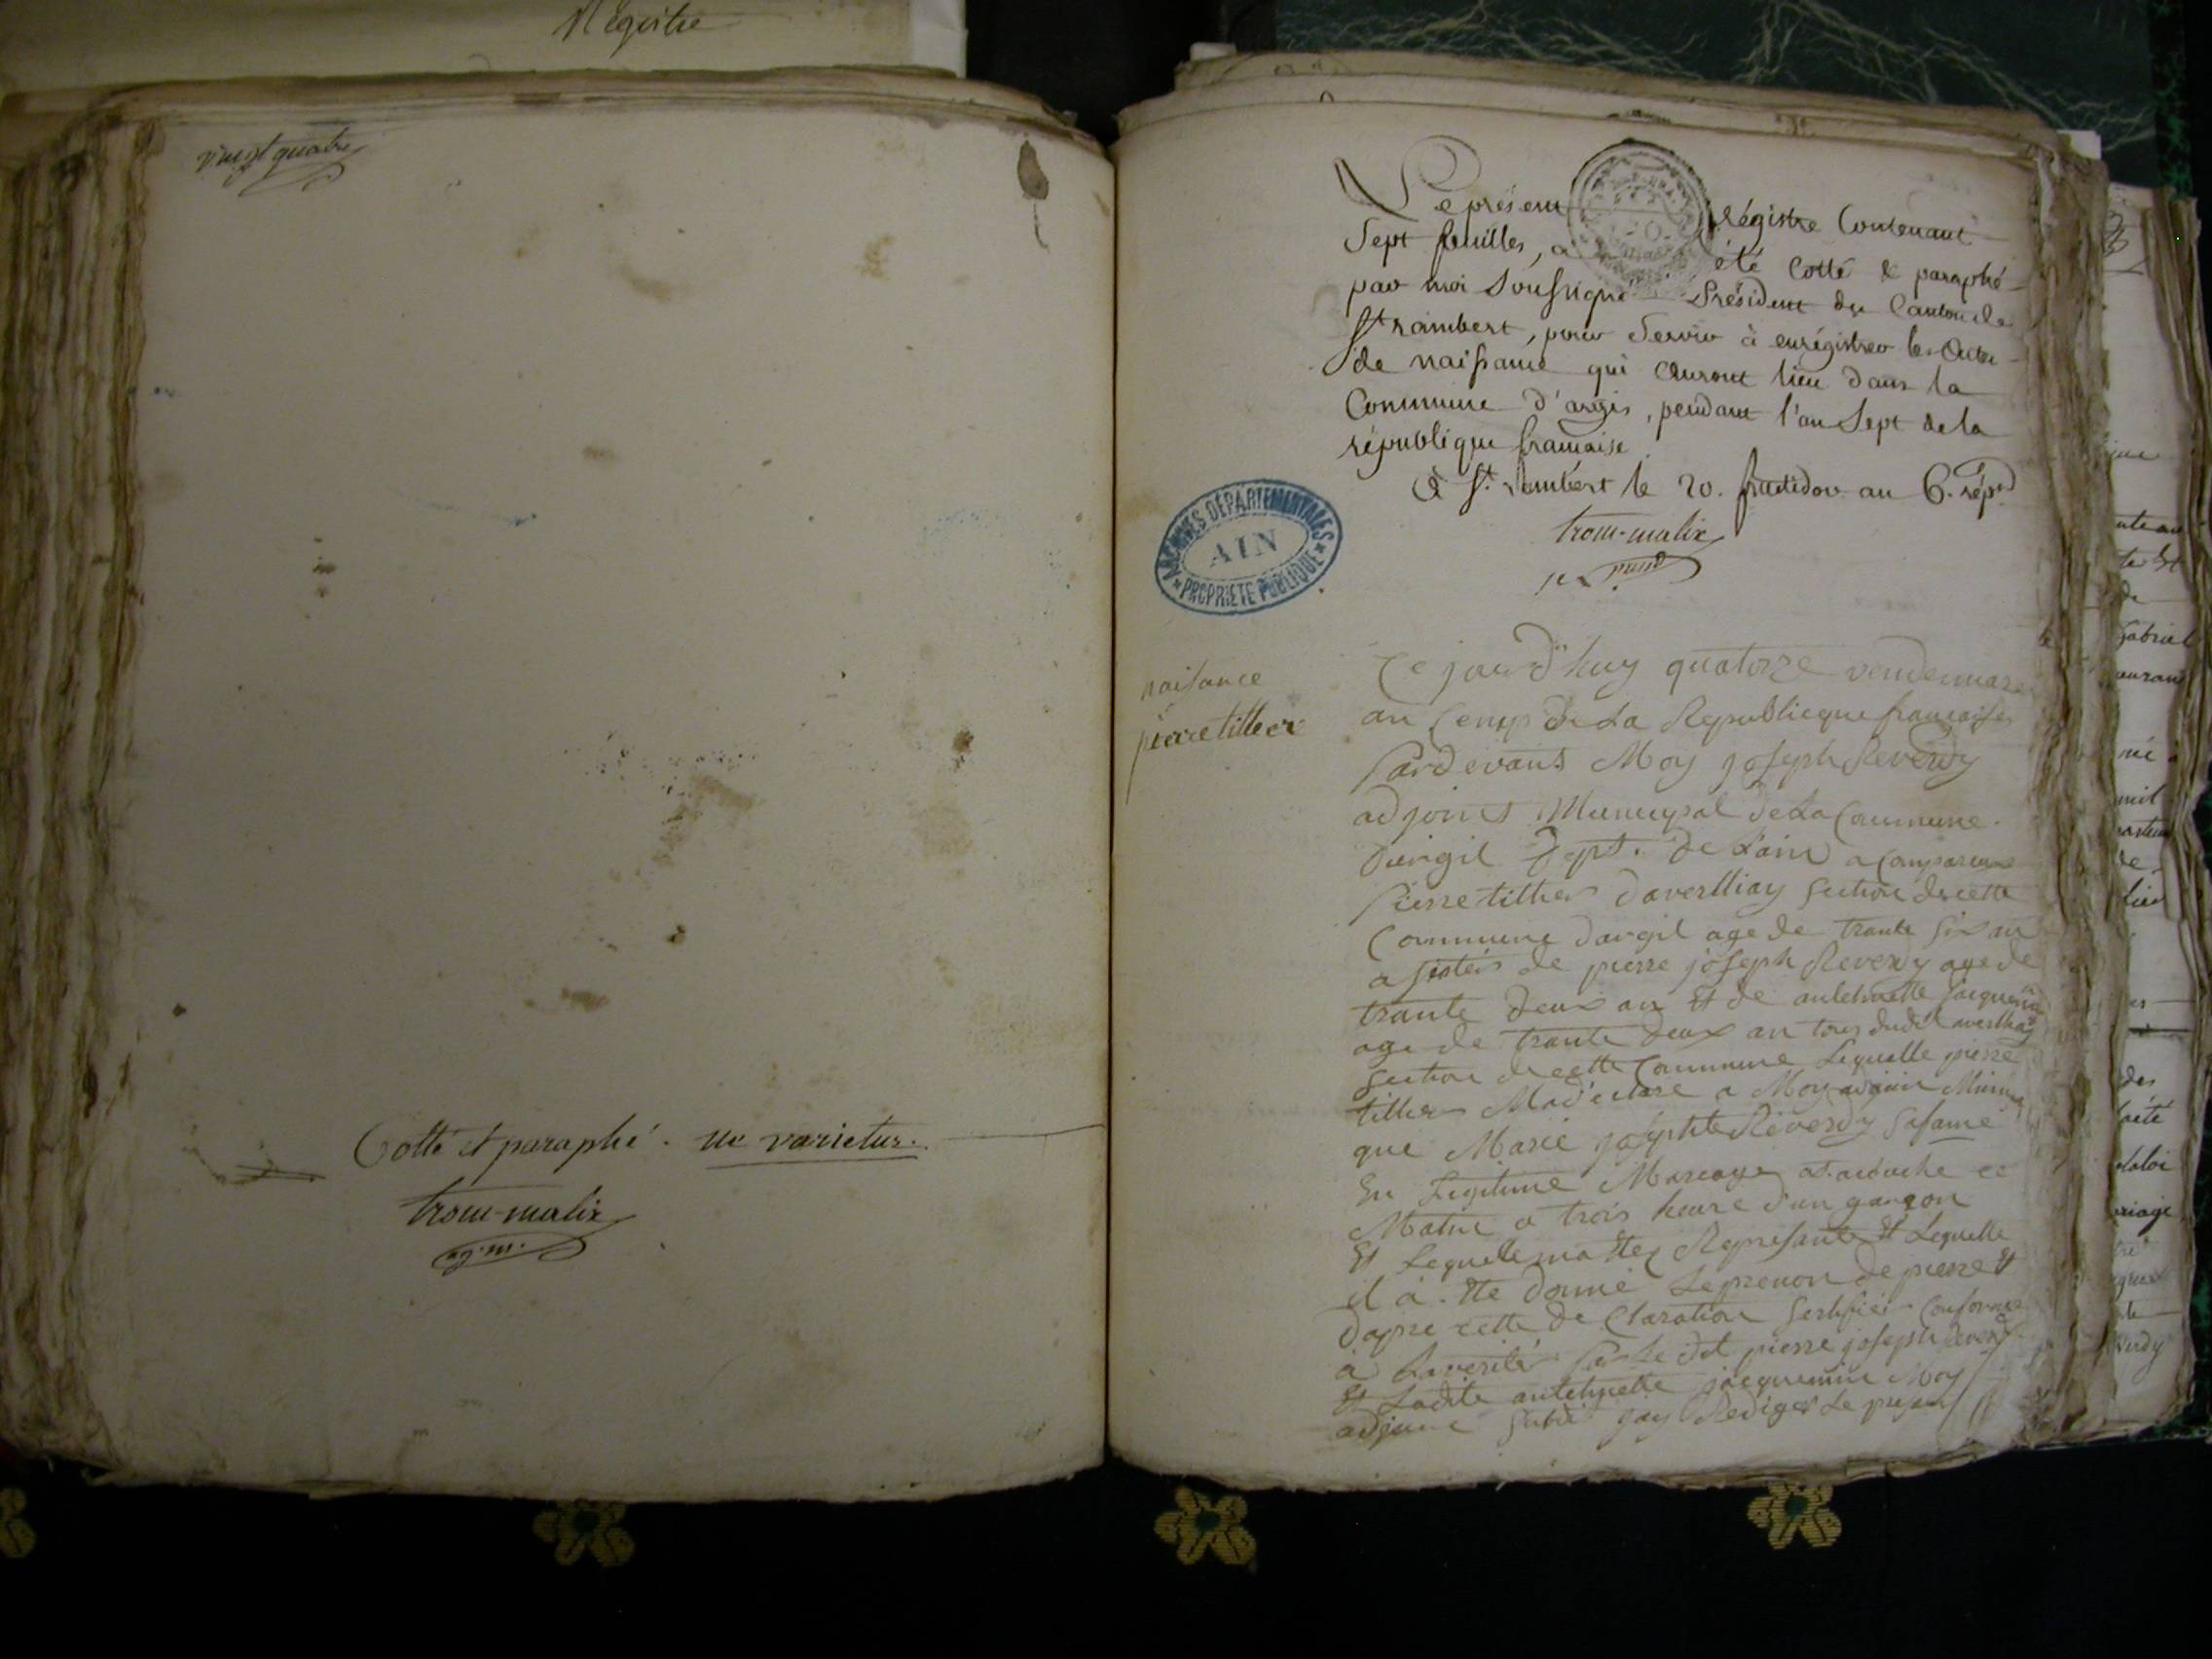 Registre
vingt quatre
Cotté et paraphé. ne varietur.
trom-malix
Le présent Régistre Contenant
Sept feuilles, a été Cotté & paraphé
par moi Soussigné Président du Canton de
St rambert, pour Servir à enrégistrer les Actes
de naissance qui auront lieu dans la
Commune d'argis, pendant l'an Sept de la
république française
à St. rambert le 20. fructidor an 6. répd
trom-malix
ARCHIVES DÉPARTEMENTALES
AIN
PROPRIÉTÉ PUBLIQUE
naisance
pierre tillier
Ce jourd'huy quatorze vendemiare
an de La Republicque francaise
Pardevant Moy joseph Reverdy
adjoint Municipal de La Commune
Dept. de Lain a Comparu
Pierre tillier section de cette
Commune dargil age de trante six an
de pierre joseph Reverdy age de
trante deux an Et de anthelmette jacquemin
age de trante deux an tous dudit
section de cette Commune Lequelle pierre
tillier Ma declare a Moy
que Marie josephte Reverdy safame
En Legitime Mareage acouche ce
Matin a trois heure d'un garçon
Et Lequelle Represante Et Lequelle
il a Ete donné Leprenon de pierre Et
dapre cette de Claration Sertifiér Conforme
a Laverité Par Le dit pierre joseph Reverdy
Et Ladite anthelmette jacquemin Moy
adjoint jay Rediger Le present